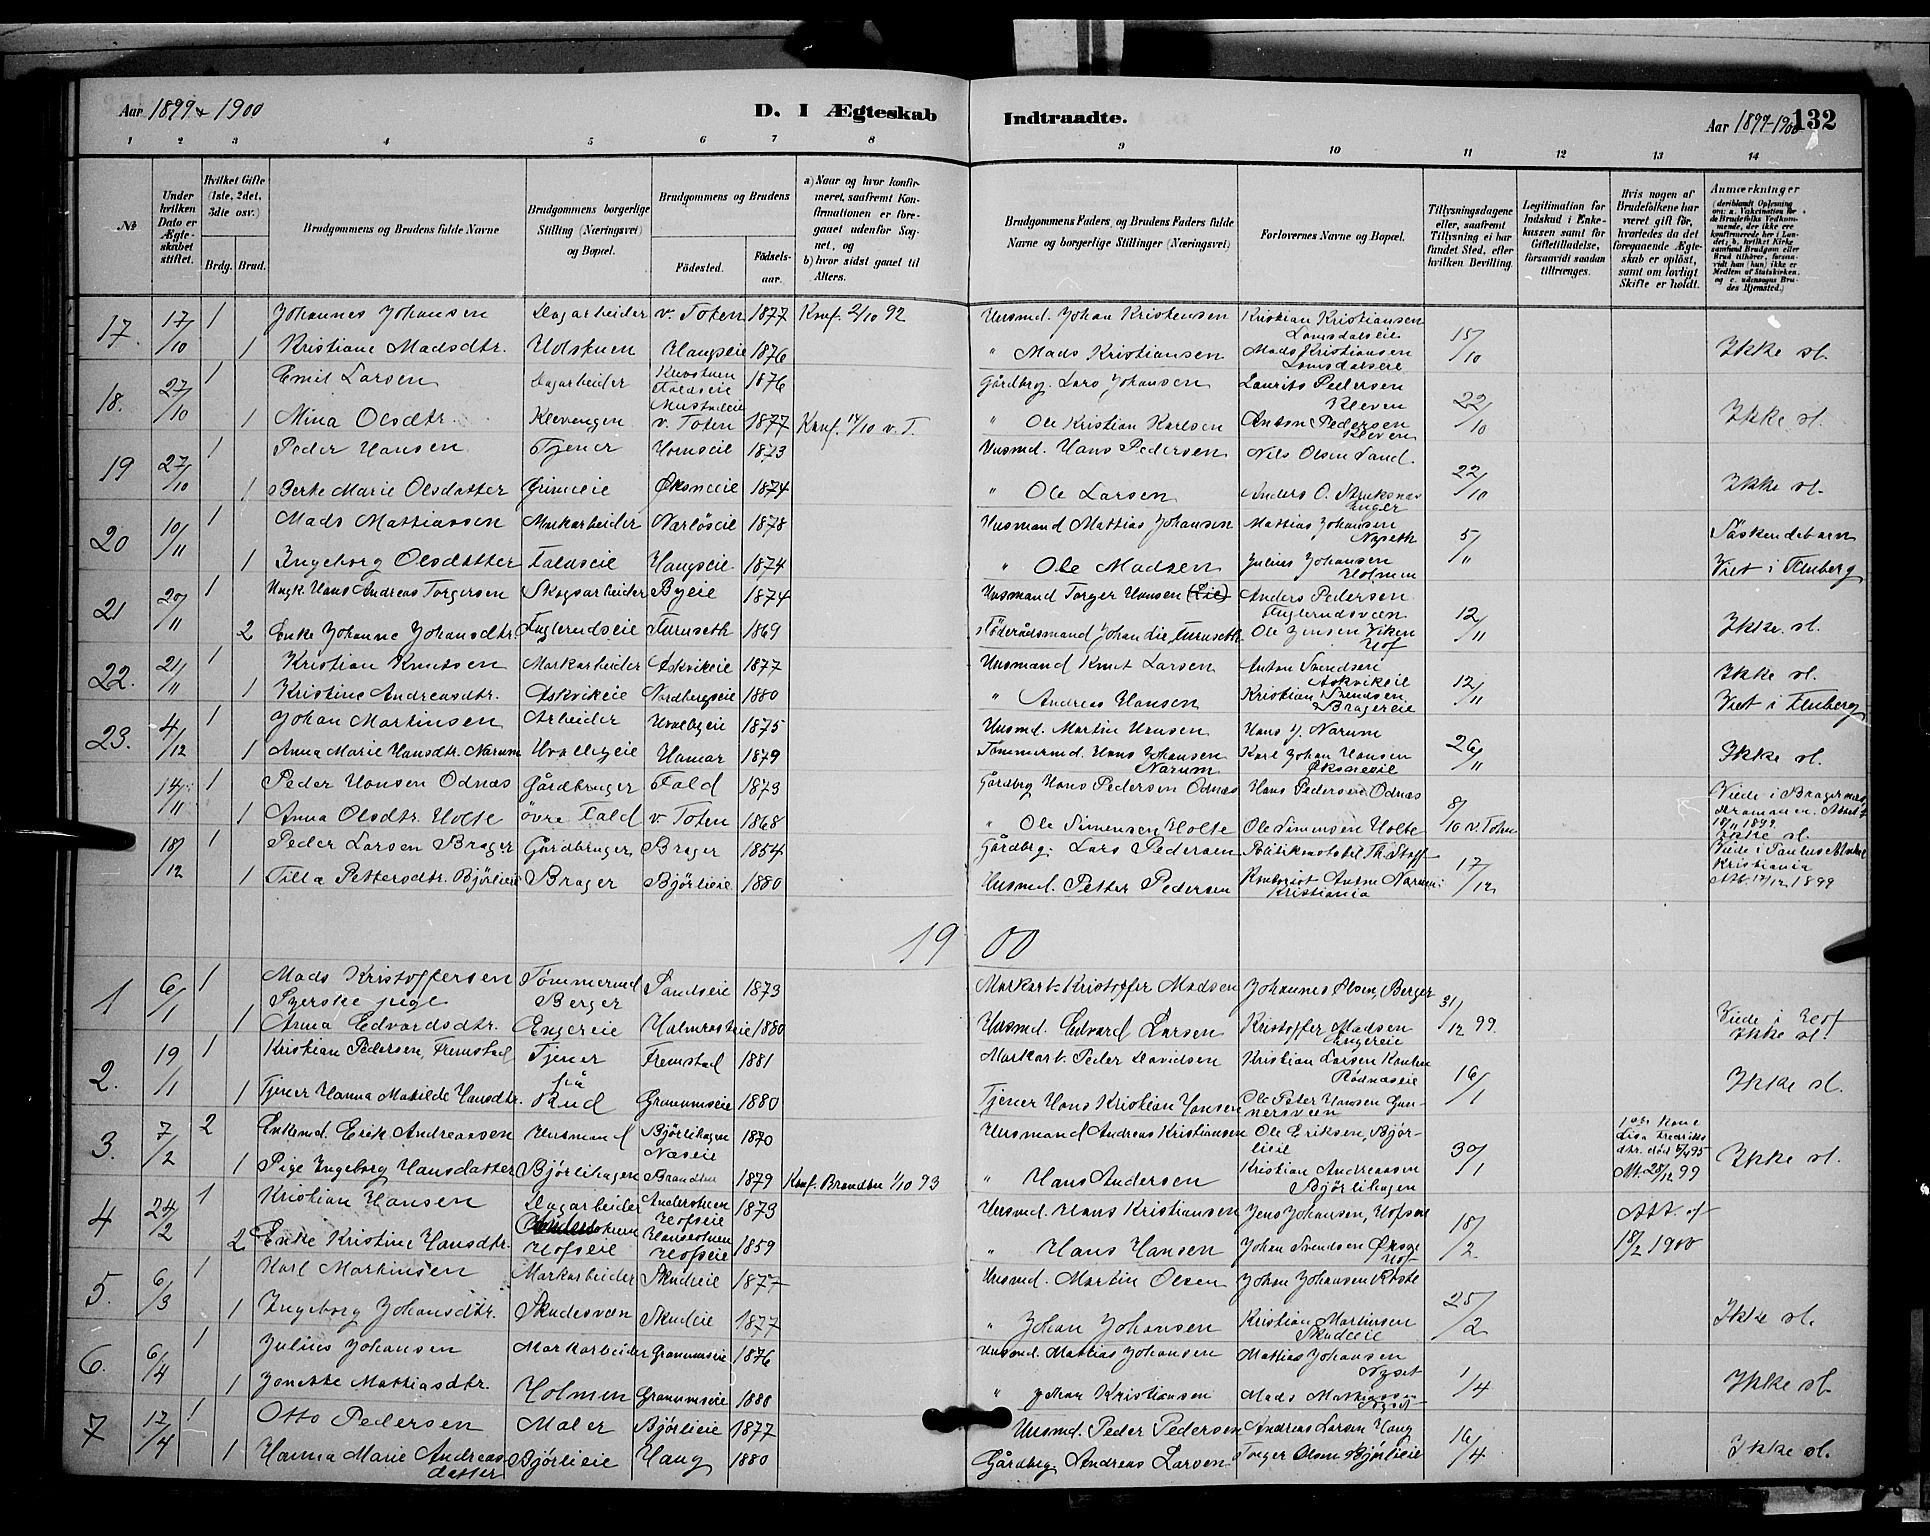 Aar 1899 & 1900
D. I Ægteskab Indtraadte.
Aar 1899-1900 132
1 2 3 4 5 6 7 8 9 10 11 12 13 14
№
Under hvilken Dato er Ægteskabet stiftet.
Hvilket Gifte (1ste, 2det, 3die osv.)
Brdg. Brud.
Brudgommens og Brudens fulde Navne
Brudgommens borgerlige Stilling (Næringsvei) og Bopæl.
Brudgommens og Brudens
Födested.
Födselsaar.
a) Naar og hvor konfirmeret, saafremt Konfirmationen er foregaaet udenfor Sognet, og
b) hvor sidst gaaet til Alters.
Brudgommens Faders og Brudens Faders fulde Navne og borgerlige Stillinger (Næringsvei)
Forlovernes Navne og Bopæl.
Tillysningsdagene eller, saafremt Tillysning ei har fundet Sted, efter hvilken Bevilling.
Legitimation for Indskud i Enkekassen samt for Giftetilladelse, forsaavidt saadan tiltrænges.
Hvis nogen af Brudefolkene har været gift før, hvorledes da det foregaaende Ægteskab er oplöst, samt om lovligt Skifte er holdt.
Anmærkninger (deriblandt Oplysning om: a. Vakcination for de Brudefolks Vedkommende, der ikke ere konfirmerede her i Landet; b. hvilket Kirkesamfund Brudgom eller Brud tilhører, forsaavidt han (hun) ikke er Medlem af Statskirken, og c. udensogns Brudes Hjemsted.)
17. 17/10 1 Johannes Johansen Dagarbeider v. Toten 1877 Konf. 2/10 92 Husmd. Johan Kristensen Kristian Kristiansen 15/10
1 Kristiane Madsdtr. Holstuen Haugseie 1876 " Mads Kristiansen Mads Kristiansen Ikke sl.
18. 27/10 1 Emil Larsen Dagarbeider Faldseie 1876 Gårdbrg. Lars Johansen Laurits Pedersen Kleven 22/10
1 Mina Olsdtr. Klevengen v. Toten 1877 Konf. 14/10 v. T. " Ole Kristian Karlsen Anton Pedersen Kleven Ikke sl.
19 27/10 1 Peder Hansen Tjener Hornseie 1873 Husmd. Hans Pedersen Nils Olsen Sand 22/10
1 Berte Marie Olsdatter Grimeie Øksneeie 1874 " Ole Larsen Anders O. Enger Ikke sl.
20 10/11 1 Mads Mattiassen Markarbeider Narløseie 1878 Husmand Mattias Johansen Mattias Johansen Nyseth 5/11 Søskendebarn
1 Ingeborg Olsdatter Faldseie Haugseie 1874 " Ole Madsen Julius Johansen Holmen Viet i Fluberg
21 20/11 1 Ungk. Hans Andreas Torgersen Skogsarbeider Byeie 1874 Husmand Torger Hansen (Lie) Anders Pedersen Fuglerudsveen 12/11
2 Enke Johanne Johansdtr. Fuglerudseie Furuseth 1869 Föderådsmand Johan Lie, Furuseth Ole Jensen Viken Hof Ikke sl.
22. 21/11 1 Kristian Knutsen Markarbeider Askvikeie 1877 Husmand Knut Larsen Anton Svendsen Askvikeie 12/11 Ikke sl.
1 Kristine Andreasdtr. Askvikeie Nordbergseie 1880 " Andreas Hansen Kristian Svendsen Bragereie Viet i Fluberg
23. 4/12 1 Johan Martinsen Arbeider Hvalbyeie 1875 Husmd. Martin Hansen Hans J. Narum 26/11
1 Anna Marie Hansdtr. Narum Hvalbyeie Hamar 1879 Tømmermd. Hans Johansen Narum Karl Johan Hansen Øksneeie Ikke sl.
14/11 1 Peder Hansen Odnæs Gårdbruger Fald 1873 Gårdbrg Hans Pedersen Odnæs Hans Pedersen Odnæs 8/10 v. Toten Viede i Bragernæs, Drammen. Attest 18/11 1899.
1 Anna Olsdtr. Holte övre Fald v Toten 1868 " Ole Simensen Holte Ole Simensen Holte Ikke sl.
18/12 1 Peder Larsen Brager Gårdbruger Brager 1854 Gårdbrg. Lars Pedersen Th. Staff 17/12 Viede i Paulus Kristiania
1 Tilla Pettersdtr. Bjørlieie Brager Bjørlieie 1880 Husmd. Petter Pedersen Kontorist Anton Narum, Kristiania Att. 17/12 1899
1900
1 6/1 1 Mads Kristoffersen Tømmermd Berger Sandseie 1873 Markarb. Kristoffer Madsen Johannes Olsen, Berger 31/12 99.
1 Syerske pige Anna Edvardsdtr. Engereie 1880 Husmd. Edvard Larsen Kristoffer Madsen Engereie Viede i Hof Ikke sl.
2. 19/1 1 Kristian Pedersen, Fremstad Tjener på Rud Fremstad 1881 Markarb. Peder Davidsen Kristian Larsen Rødnæseie 16/1
1 Tjener Hanna Matilde Hansdtr. Granumseie 1880 Tjener Hans Kristian Hansen Ole Peter Hansen Gunnersveen Ikke sl.
3. 7/2 2 Enkemd. Erik Andreassen Husmand Bjørlihagen Næseie 1870 Husmand Andreas Kristiansen Ole Eriksen, Bjørlieie 30/1 1ste Kone Lisa Fredriksdtr. død 5/4 95
1 Pige Ingeborg Hansdatter Bjørlihagen Brandbu 1879 Konf. Brandbu 1/10 93 " Hans Andersen Kristian Andreassen Bjørlihagen Att. 28/12 99 Ikke sl.
4 24/2 1 Kristian Hansen Dagarbeider Anderstuen Hofseie 1873 Husmd. Hans Kristiansen Jens Johansen, Hofseie 18/2 Att. af
2 Enke Kristine Hansdtr. Hofseie Hofseie 1859 " Hans Hansen Johan Svendsen Hof 18/2 1900
5. 6/3 1 Karl Martinsen Markarbeider Skudeie 1877 Husmd. Martin Olsen Johan Johansen Røste 25/2
1 Ingeborg Johansdtr. Skudesveen Skudeie 1877 " Johan Johansen Kristian Martinsen Skudeie Ikke sl.
6. 6/4 1 Julius Johansen Markarbeider Granumseie 1876 Husmd. Mattias Johansen Mattias Johansen Nyset 1/4
1 Jonette Mattiasdtr. Holmen Granumseie 1880 " Johan Kristiansen Mads Mattiassen Nyset Ikke sl.
7 17/4 1 Otto Pedersen Maler Bjørlieie 1877 Husmd. Peder Pedersen Andreas Larsen Haug 16/4
1 Hanna Marie Andreasdatter Bjørlieie Haug 1880 Gårdbrg. Andreas Larsen Torger Olsen Bjørlieie Ikke sl.